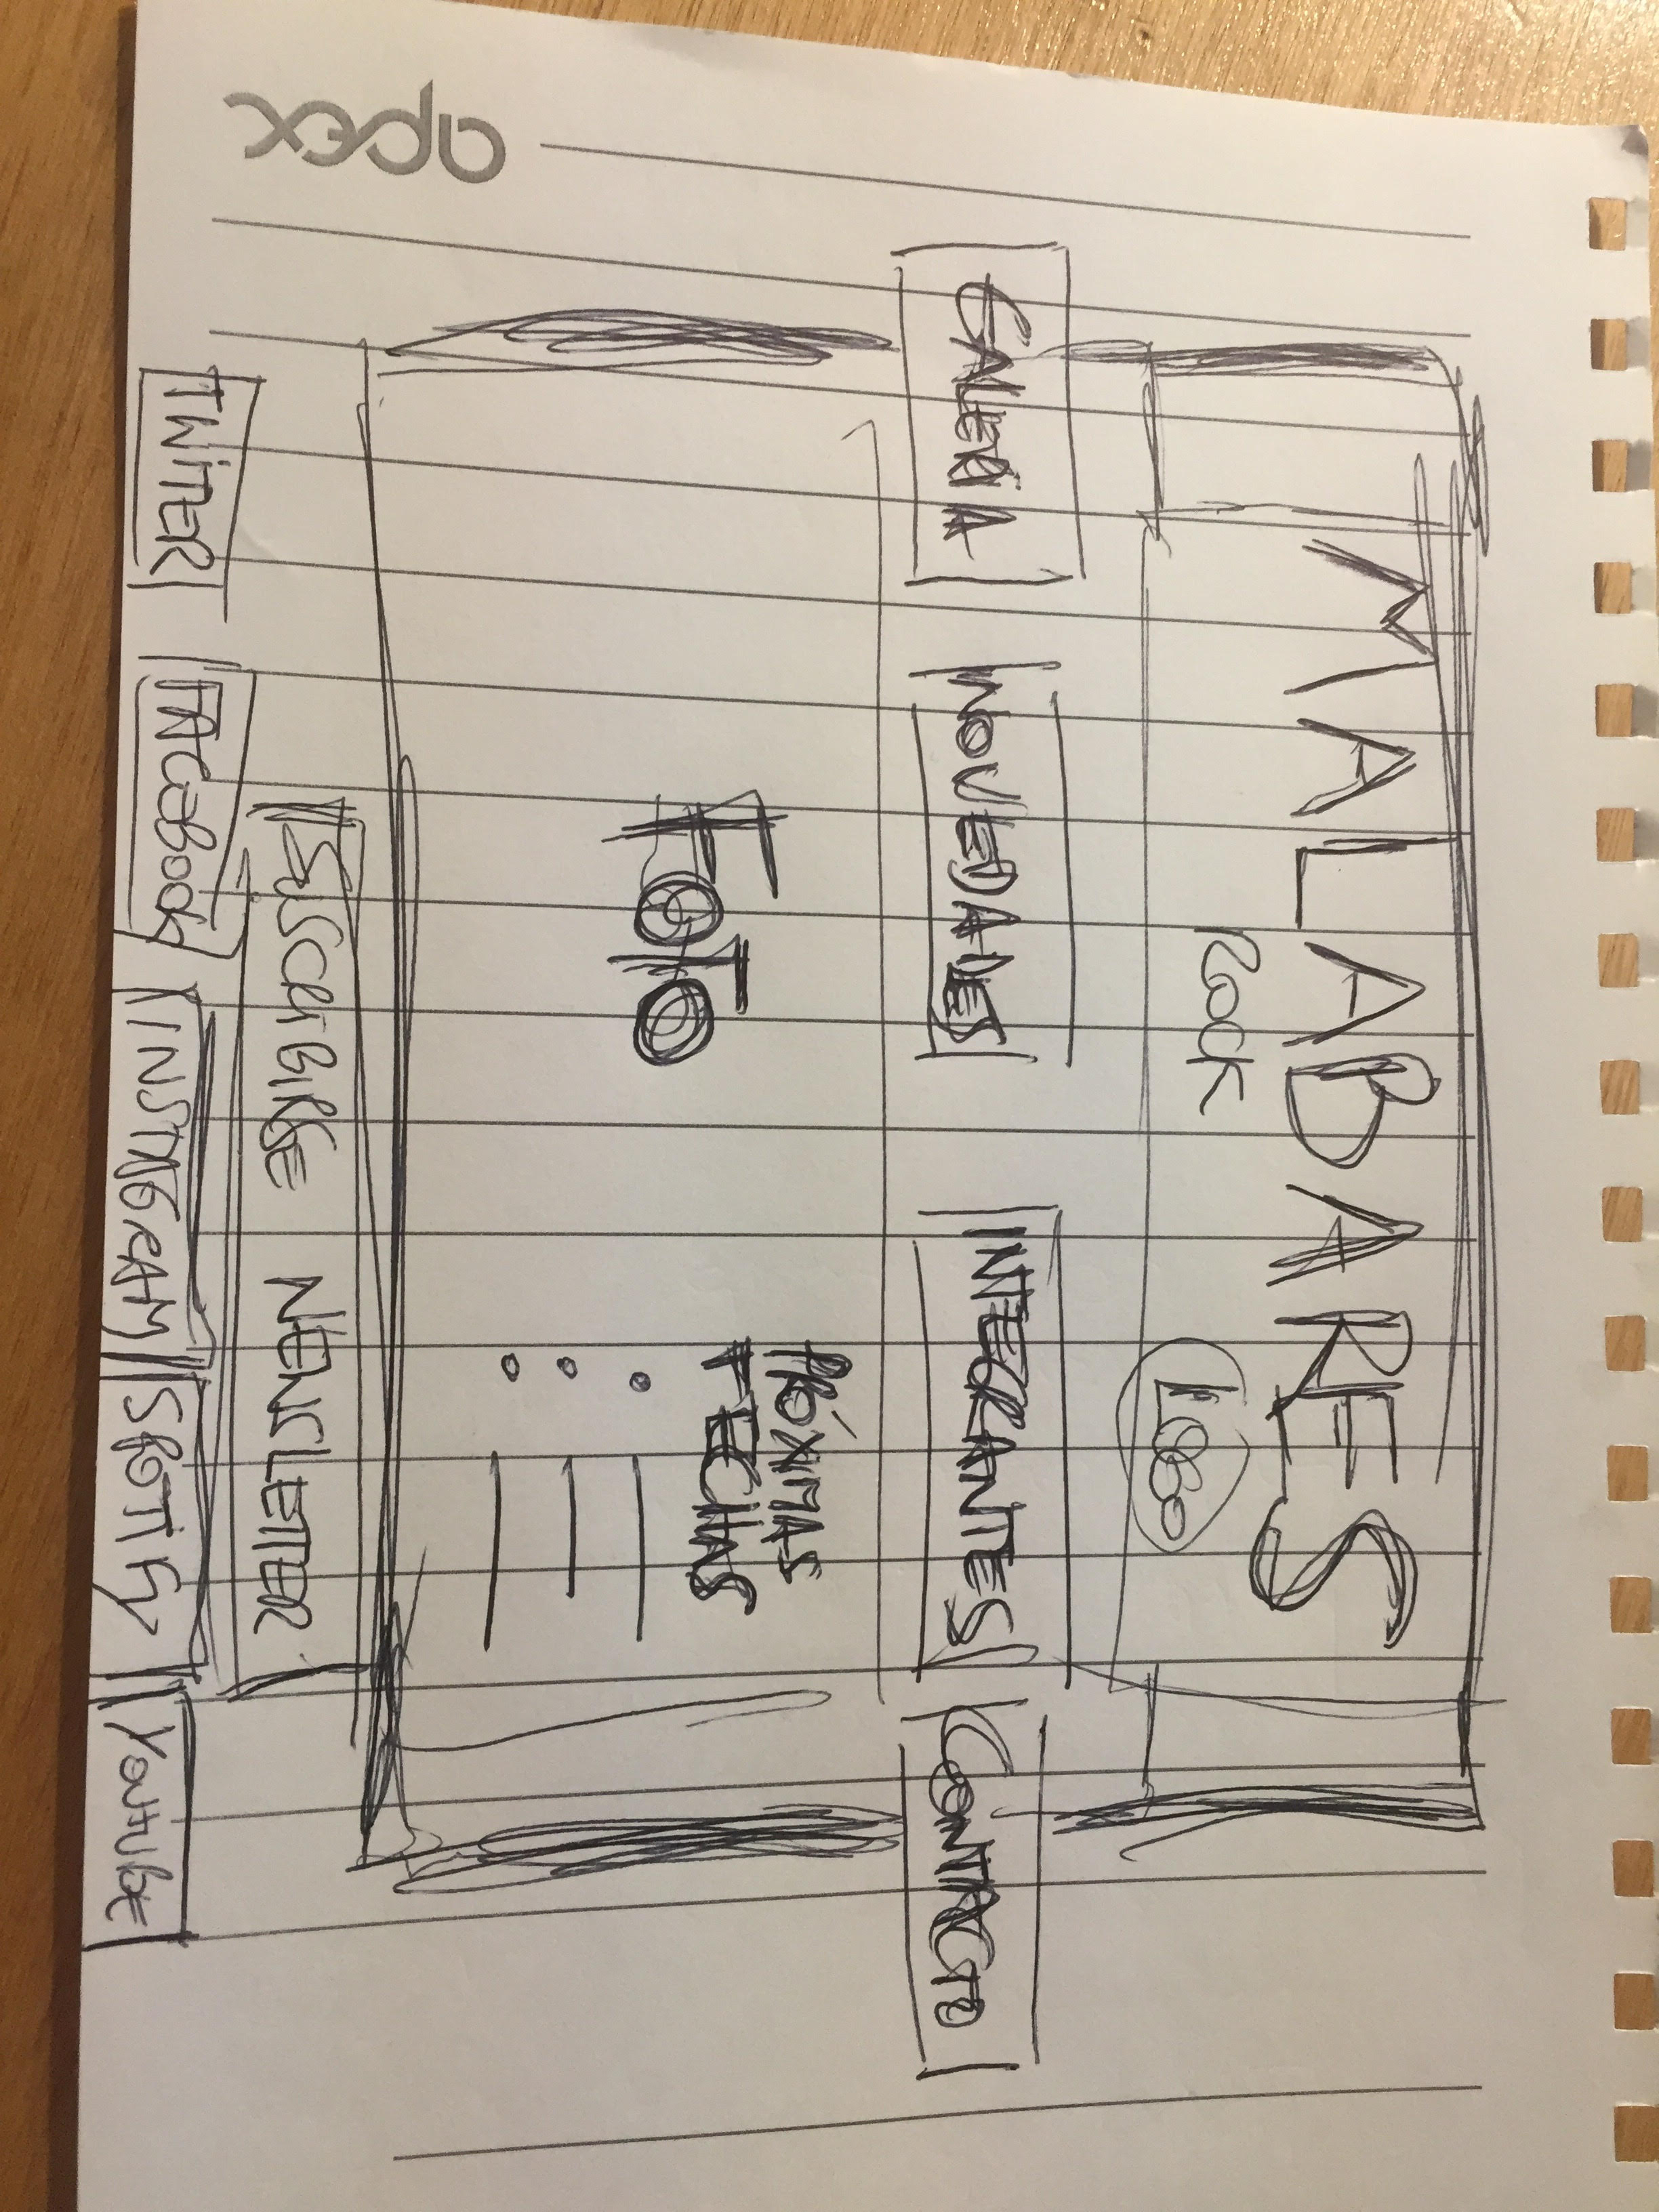 MALABARES
ROCK
LOGO
GALERIA
NOVEDADES
INTEGRANTES
CONTACTO
FOTO
PRÓXIMAS
FECHAS
SUSCRIBIRSE NEWSLETTER
TWITTER
FACEBOOK
INSTAGRAM
SPOTIFY
YOUTUBE
apex